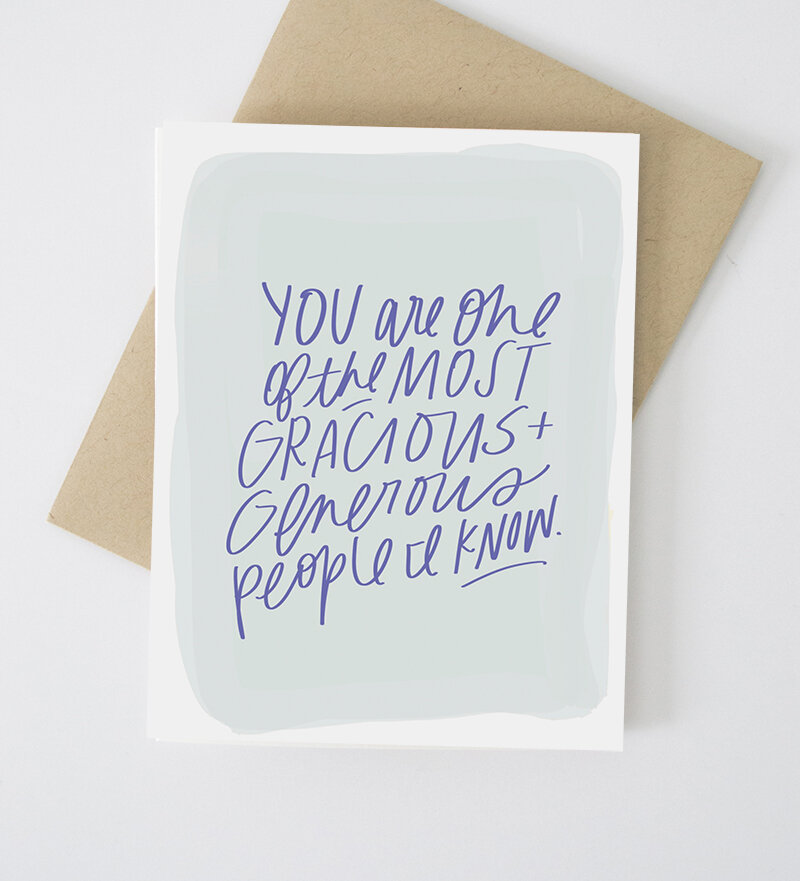 YOU are one
of the MOST
GRACIOUS +
Generous
people I KNOW.